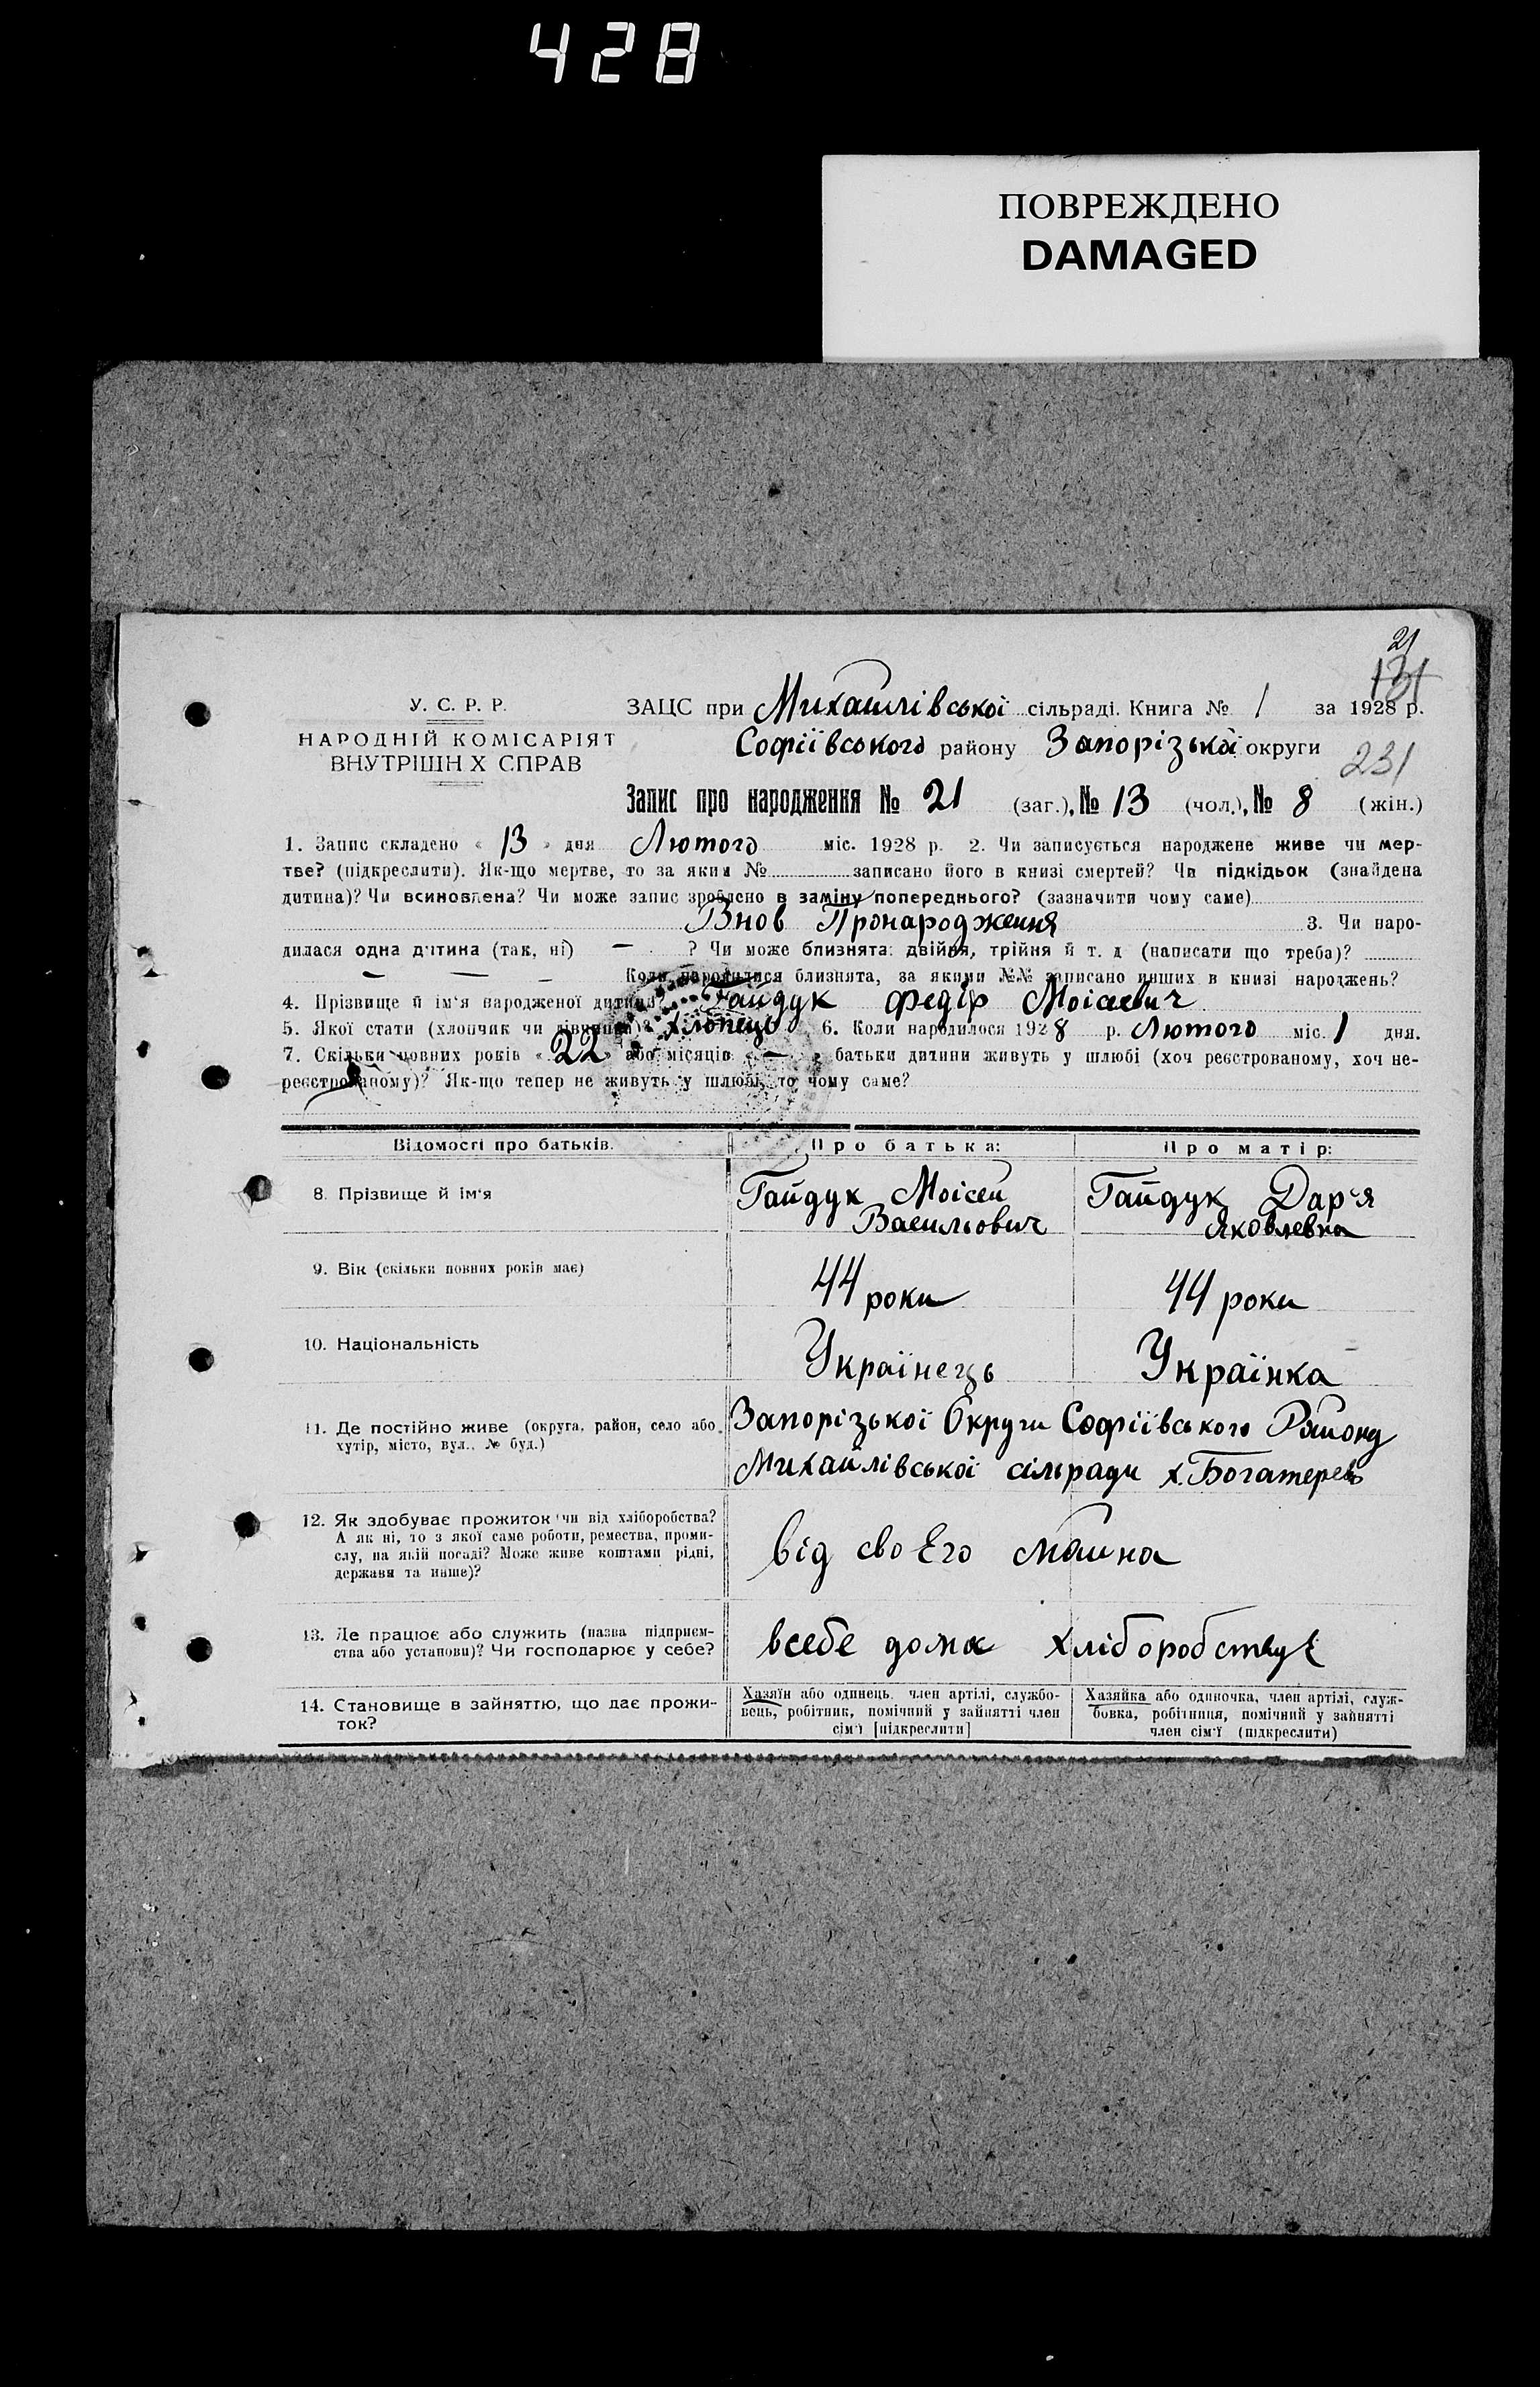 428
ПОВРЕЖДЕНО
DAMAGED
21
131
У. С. Р. Р.
НАРОДНІЙ КОМІСАРІЯТ
ВНУТРІШН Х СПРАВ
ЗАЦС при Михайлівської сільраді. Книга № 1 за 1928 р.
Софіївського району Запорізької округи
231
Запис про народження № 21 (заг.), № 13 (чол.), № 8 (жін.)
1. Запис складено « 13 » дня Лютого міс. 1928 р. 2. Чи записується народжене живе чи мер-
тве? (підкреслити). Як-що мертве, то за яким № записано його в книзі смертей? Чи підкідьок (знайдена
дитина)? Чи всиновлена? Чи може запис зроблено в заміну попереднього? (зазначити чому саме)
Внов Пронародження 3. Чи наро-
дилася одна дитина (так, ні) — ? Чи може близнята: двійня, трійня й т. д (написати що треба)?
— — — Коли народилися близнята, за якими №№ записано инших в книзі народжень?
4. Прізвище й ім'я народженої дитини? Гайдук Федір Моісаевич
5. Якої стати (хлопчик чи дівчина)? хлопець 6. Коли народилося 1928 р. Лютого міс. 1 дня.
7. Скільки повних років « 22 » або місяців « — » батьки дитини живуть у шлюбі (хоч реєстрованому, хоч не-
реєстрованому)? Як-що тепер не живуть у шлюбі, то чому саме?
Відомості про батьків. Про батька: Про матір:
8. Прізвище й ім'я Гайдук Моісей Гайдук Дар'я
Васильович Яковлевна
9. Вік (скільки повних років має) 44 роки 44 роки
10. Національність Українець Українка
11. Де постійно живе (округа, район, село або Запорізької Округи Софіївського Району
хутір, місто, вул., № буд.) Михайлівської сільради х. Богатерев
12. Як здобуває прожиток чи від хліборобства?
А як ні, то з якої саме роботи, ремества, проми-
слу, на якій посаді? Може живе коштами рідні, від своЕго маина
держави та инше)?
13. Де працює або служить (назва підприєм-
ства або установи)? Чи господарює у себе? всебе дома хліборобствує
14. Становище в зайняттю, що дає прожи-
ток?
Хазяїн або одинець, член артілі, службо-
вець, робітник, помічний у зайнятті член
сім'ї [підкреслити]
Хазяйка або одиночка, член артілі, служ-
бовка, робітниця, помічний у зайнятті
член сім'ї (підкреслити)